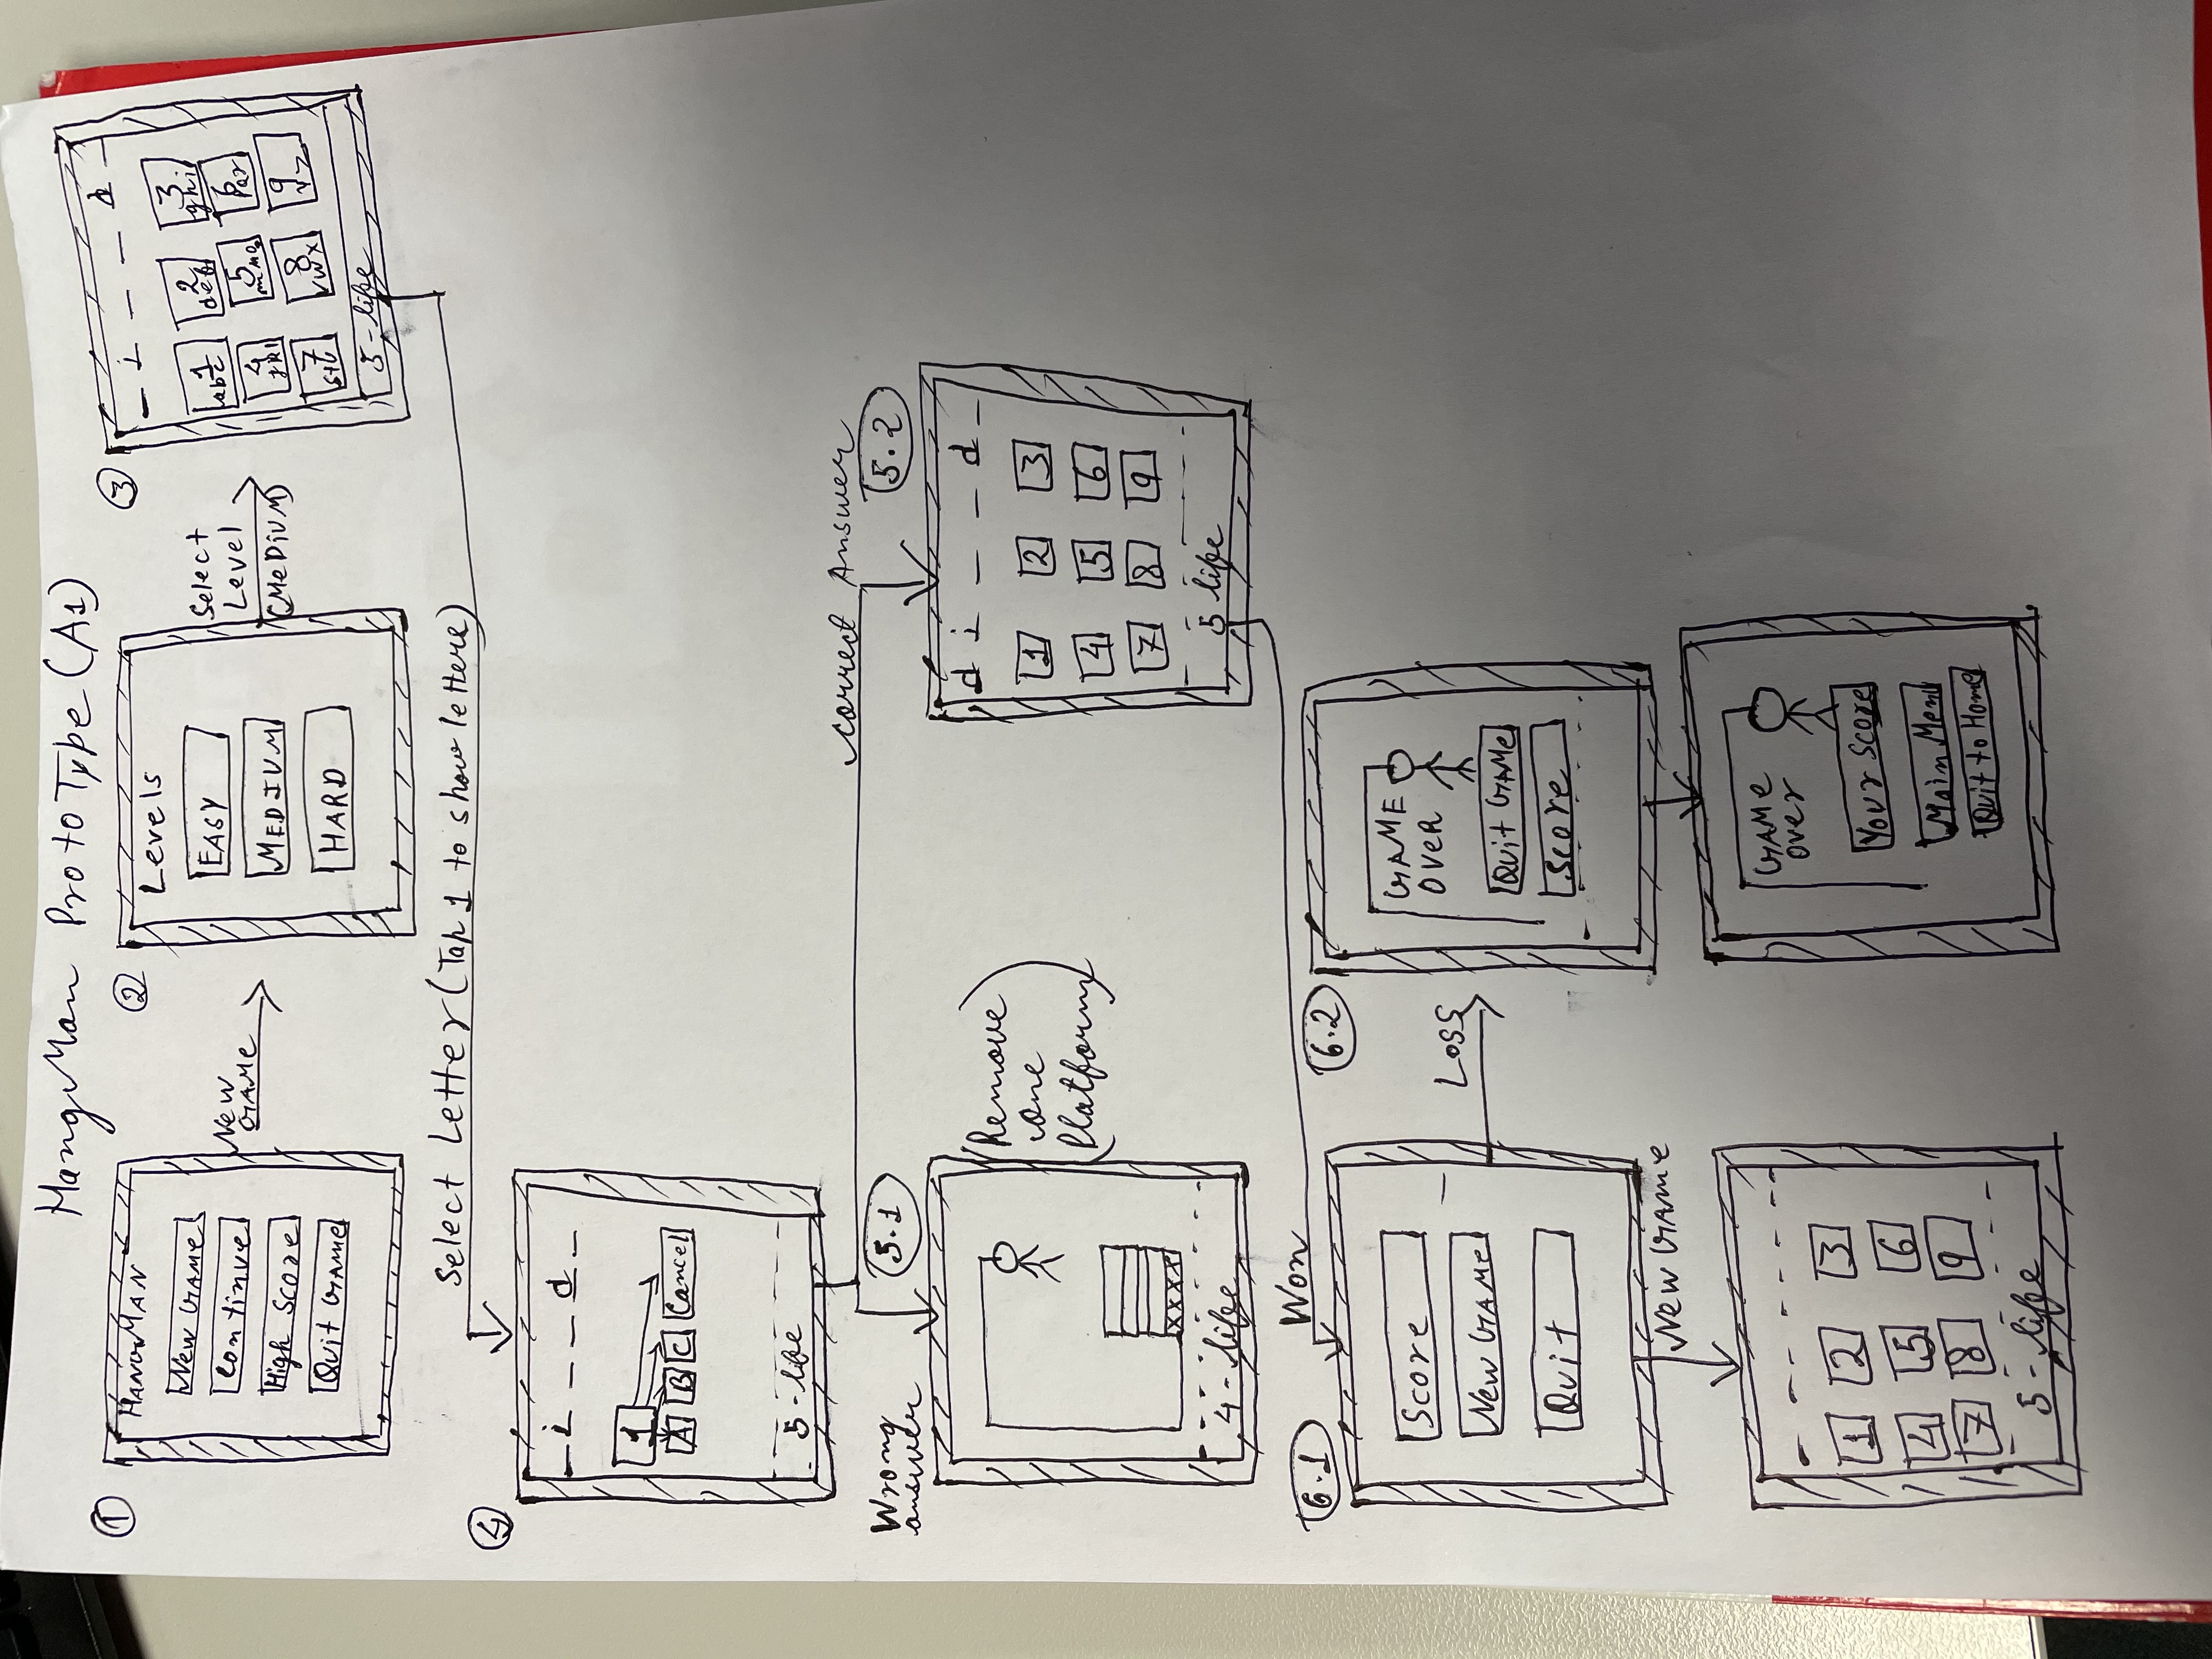 HangMan ProtoType (A1)
1
HANGMAN
New GAMe
Continue
High Score
Quit GAMe
New
GAMe
2
Levels
EASY
MEDIUM
HARD
Select
Level
(MeDiUM)
3
_ i _ _ d _
1
abc
2
def
3
ghi
4
jkl
5
mno
6
pqr
7
stu
8
vwx
9
yz
5-life
Select Letter (Tap 1 to show letters)
4
_ i _ _ d _
1
A B C Cancel
5-life
Wrong
answer
5.1
Correct Answer
5.2
(Remove
one
Platform)
XXXX
4-life
d i _ _ d _
1 2 3
4 5 6
7 8 9
5 life
Won
6.1
Score
New GAMe
Quit
Loss
6.2
GAME
OVER
Quit GAMe
Score
New GAMe
_ _ _ _ _ _
1 2 3
4 5 6
7 8 9
5-life
GAMe
over
Your Score
Main Menu
Quit to Home